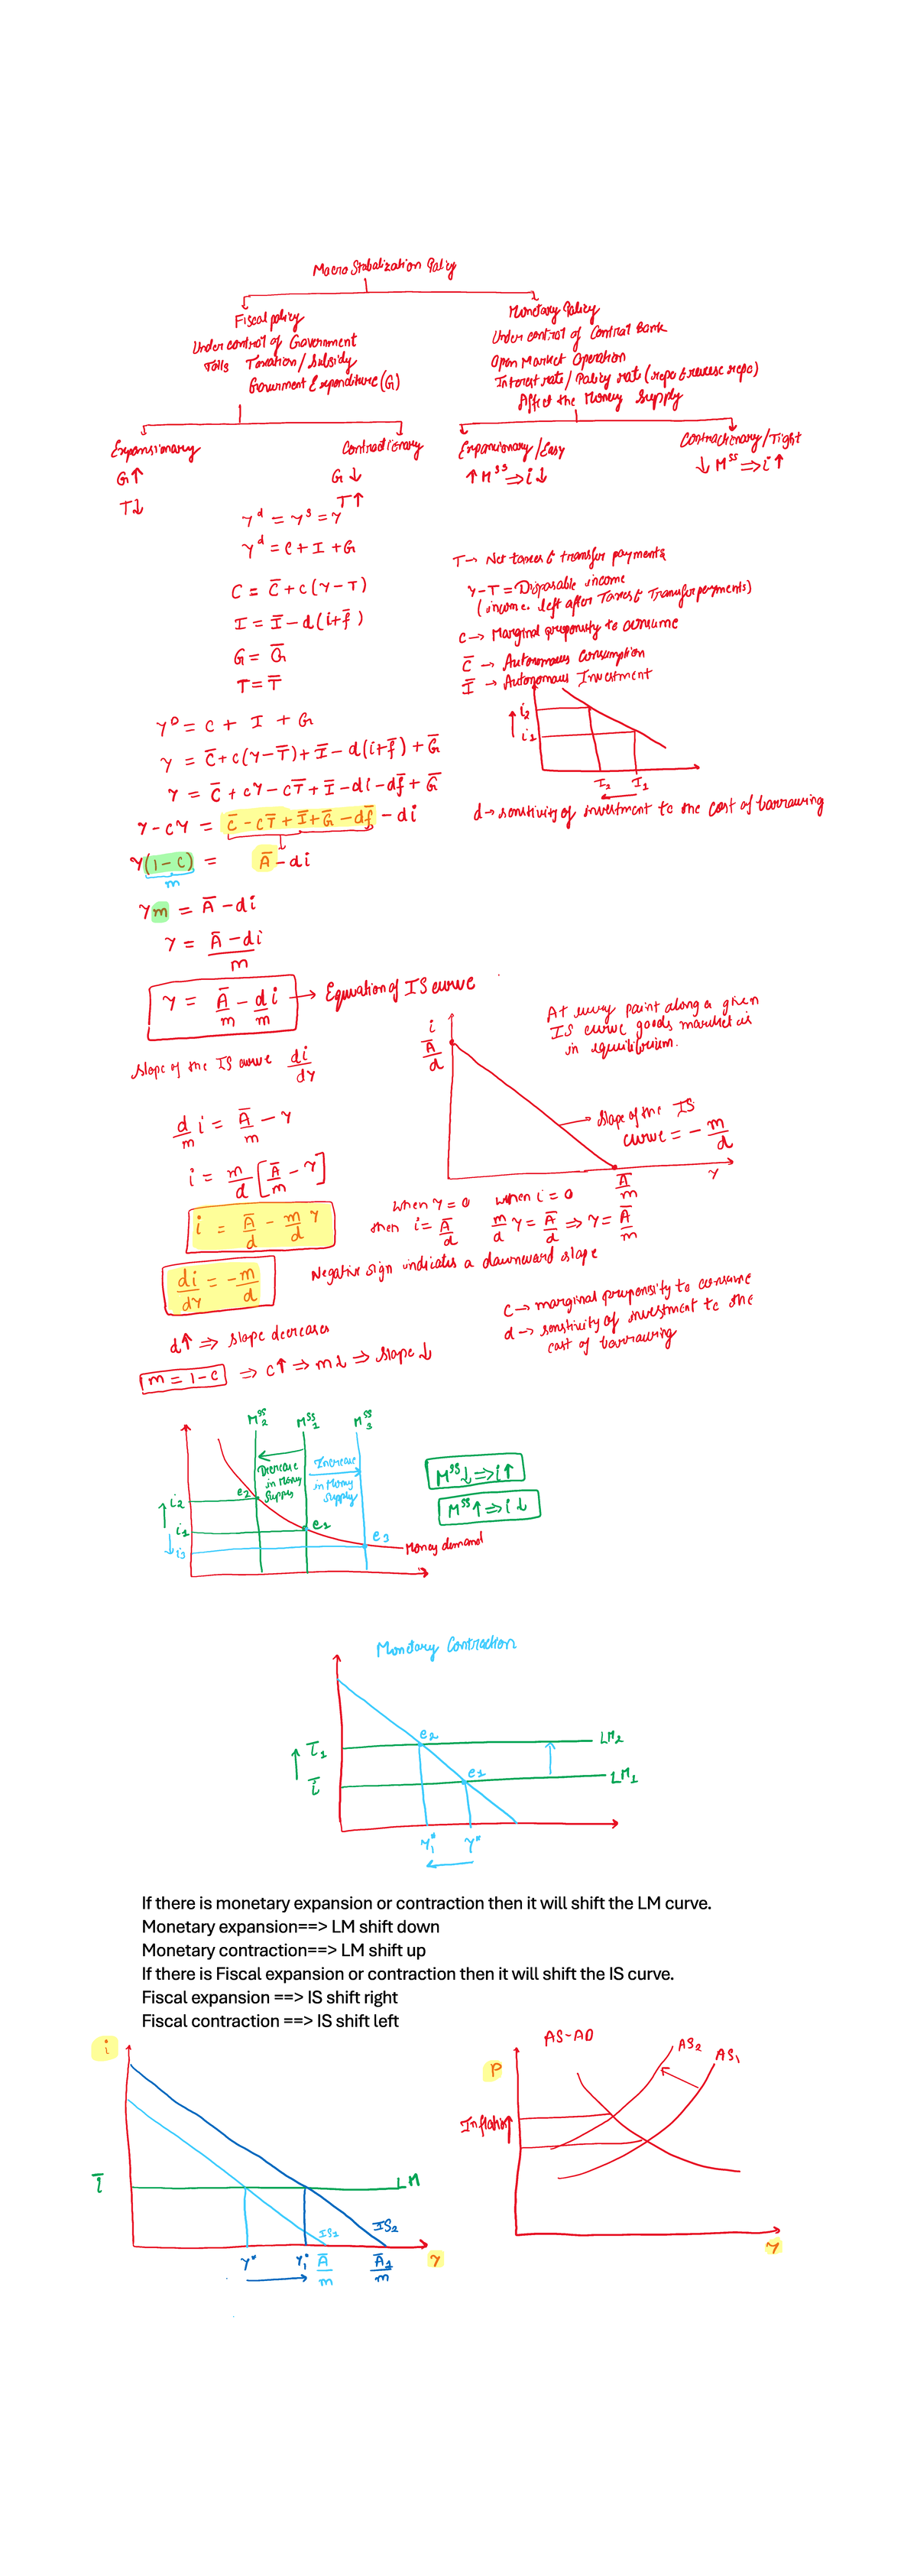 Macro Stabalization Policy
Fiscal policy
Under control of Government
Tolls Taxation / Subsidy
Government Expenditure (G)
Monetary Policy
Under control of Central Bank
Open Market Operation
Interest rate / Policy rate (repo & reverse repo)
Affect the Money Supply
Expansionary
G↑
T↓
Contractionary
G↓
T↑
Expansionary / Easy
↑M^SS ⇒ i↓
Contractionary / Tight
↓M^SS ⇒ i↑
Y^d = Y^s = Y
Y^d = C + I + G
C = C̄ + c(Y-T)
I = Ī - d(i+f̄)
G = Ḡ
T = T̄
T → Net taxes & transfer payments
Y-T = Disposable income
(income left after Taxes & Transfer payments)
c → Marginal propensity to consume
C̄ → Autonomous Consumption
Ī → Autonomous Investment
i₂
i₁
I₂ I₁
d → sensitivity of investment to the cost of borrowing
Y^D = C + I + G
Y = C̄ + c(Y-T̄) + Ī - d(i+f̄) + Ḡ
Y = C̄ + cY - cT̄ + Ī - di - df̄ + Ḡ
Y - cY = C̄ - cT̄ + Ī + Ḡ - df̄ - di
Y(1-c) = Ā - di
m
Ym = Ā - di
Y = (Ā - di)/m
Y = Ā/m - di/m → Equation of IS curve
Slope of the IS curve di/dY
At every point along a given
IS curve goods market is
in equilibrium.
i
Ā/d
Slope of the IS
curve = -m/d
Ā/m
Y
d/m i = Ā/m - Y
i = m/d [Ā/m - Y]
i = Ā/d - m/d Y
When Y = 0 when i = 0
then i = Ā/d m/d Y = Ā/d ⇒ Y = Ā/m
di/dY = -m/d
Negative sign indicates a downward slope
c → marginal propensity to consume
d → senstivity of investment to the
cost of borrowing
d↑ ⇒ Slope decreases
m = 1-c ⇒ c↑ ⇒ m↓ ⇒ Slope↓
M^SS₂ M^SS₁ M^SS₃
Decrease
in Money
Supply
Increase
in Money
Supply
i₂
i₁
i₃
e₂
e₁
e₃
Money demand
M^SS↓ ⇒ i↑
M^SS↑ ⇒ i↓
Monetary Contraction
ī₁
ī
e₂
e₁
LM₂
LM₁
Y₁* Y*
If there is monetary expansion or contraction then it will shift the LM curve.
Monetary expansion==> LM shift down
Monetary contraction==> LM shift up
If there is Fiscal expansion or contraction then it will shift the IS curve.
Fiscal expansion ==> IS shift right
Fiscal contraction ==> IS shift left
i
ī
LM
IS₁
IS₂
Y* Y₁* Ā/m Ā₁/m Y
AS-AD
P
AS₂
AS₁
Inflation↑
Y